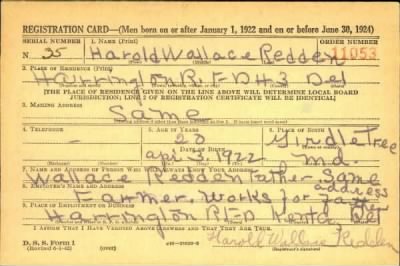 REGISTRATION CARD—(Men born on or after January 1, 1922 and on or before June 30, 1924)
SERIAL NUMBER 1. NAME (Print) ORDER NUMBER
N 35 Harold Wallace Redden 11053
2. PLACE OF RESIDENCE (Print)
Harrington R.F.D #3 Del
[THE PLACE OF RESIDENCE GIVEN ON THE LINE ABOVE WILL DETERMINE LOCAL BOARD
JURISDICTION; LINE 2 OF REGISTRATION CERTIFICATE WILL BE IDENTICAL]
3. MAILING ADDRESS
Same
4. TELEPHONE 5. AGE IN YEARS 6. PLACE OF BIRTH
- 20 Girdle Tree
DATE OF BIRTH
Apr. 3, 1922 Md.
7. NAME AND ADDRESS OF PERSON WHO WILL ALWAYS KNOW YOUR ADDRESS
Wallace Redden Father Same address
8. EMPLOYER'S NAME AND ADDRESS
Farmer. Works for Father
9. PLACE OF EMPLOYMENT OR BUSINESS
Harrington RFD Kent Del
I AFFIRM THAT I HAVE VERIFIED ABOVE ANSWERS AND THAT THEY ARE TRUE.
D. S. S. Form 1
(Revised 6-1-42) (over)
Harold Wallace Redden